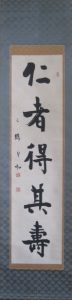 仁者得其壽